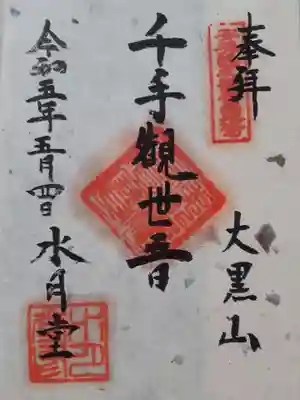 奉拝
大黒山
千手觀世音
令和五年五月四日
水月堂